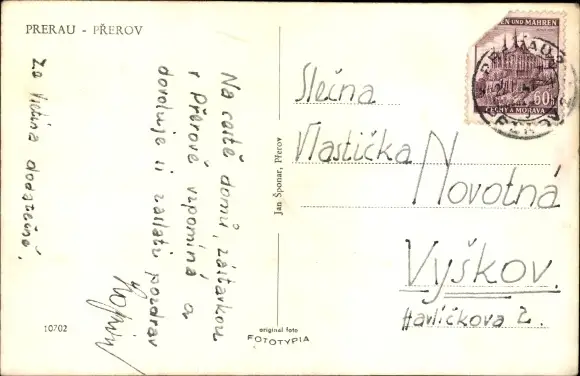 PRERAU - PŘEROV
Na cestě domů, zástavkou
v Přerově vzpomíná a
dovoluje si zaslati pozdrav
Za Vietína dodatečně.
10702
Jan Šponar, Přerov
original foto
FOTOTYPIA
EN UND MÄHREN
60h
ČECHY A MORAVA
Slečna
Vlastička
Novotná
Vyškov.
Havlíčkova 2.